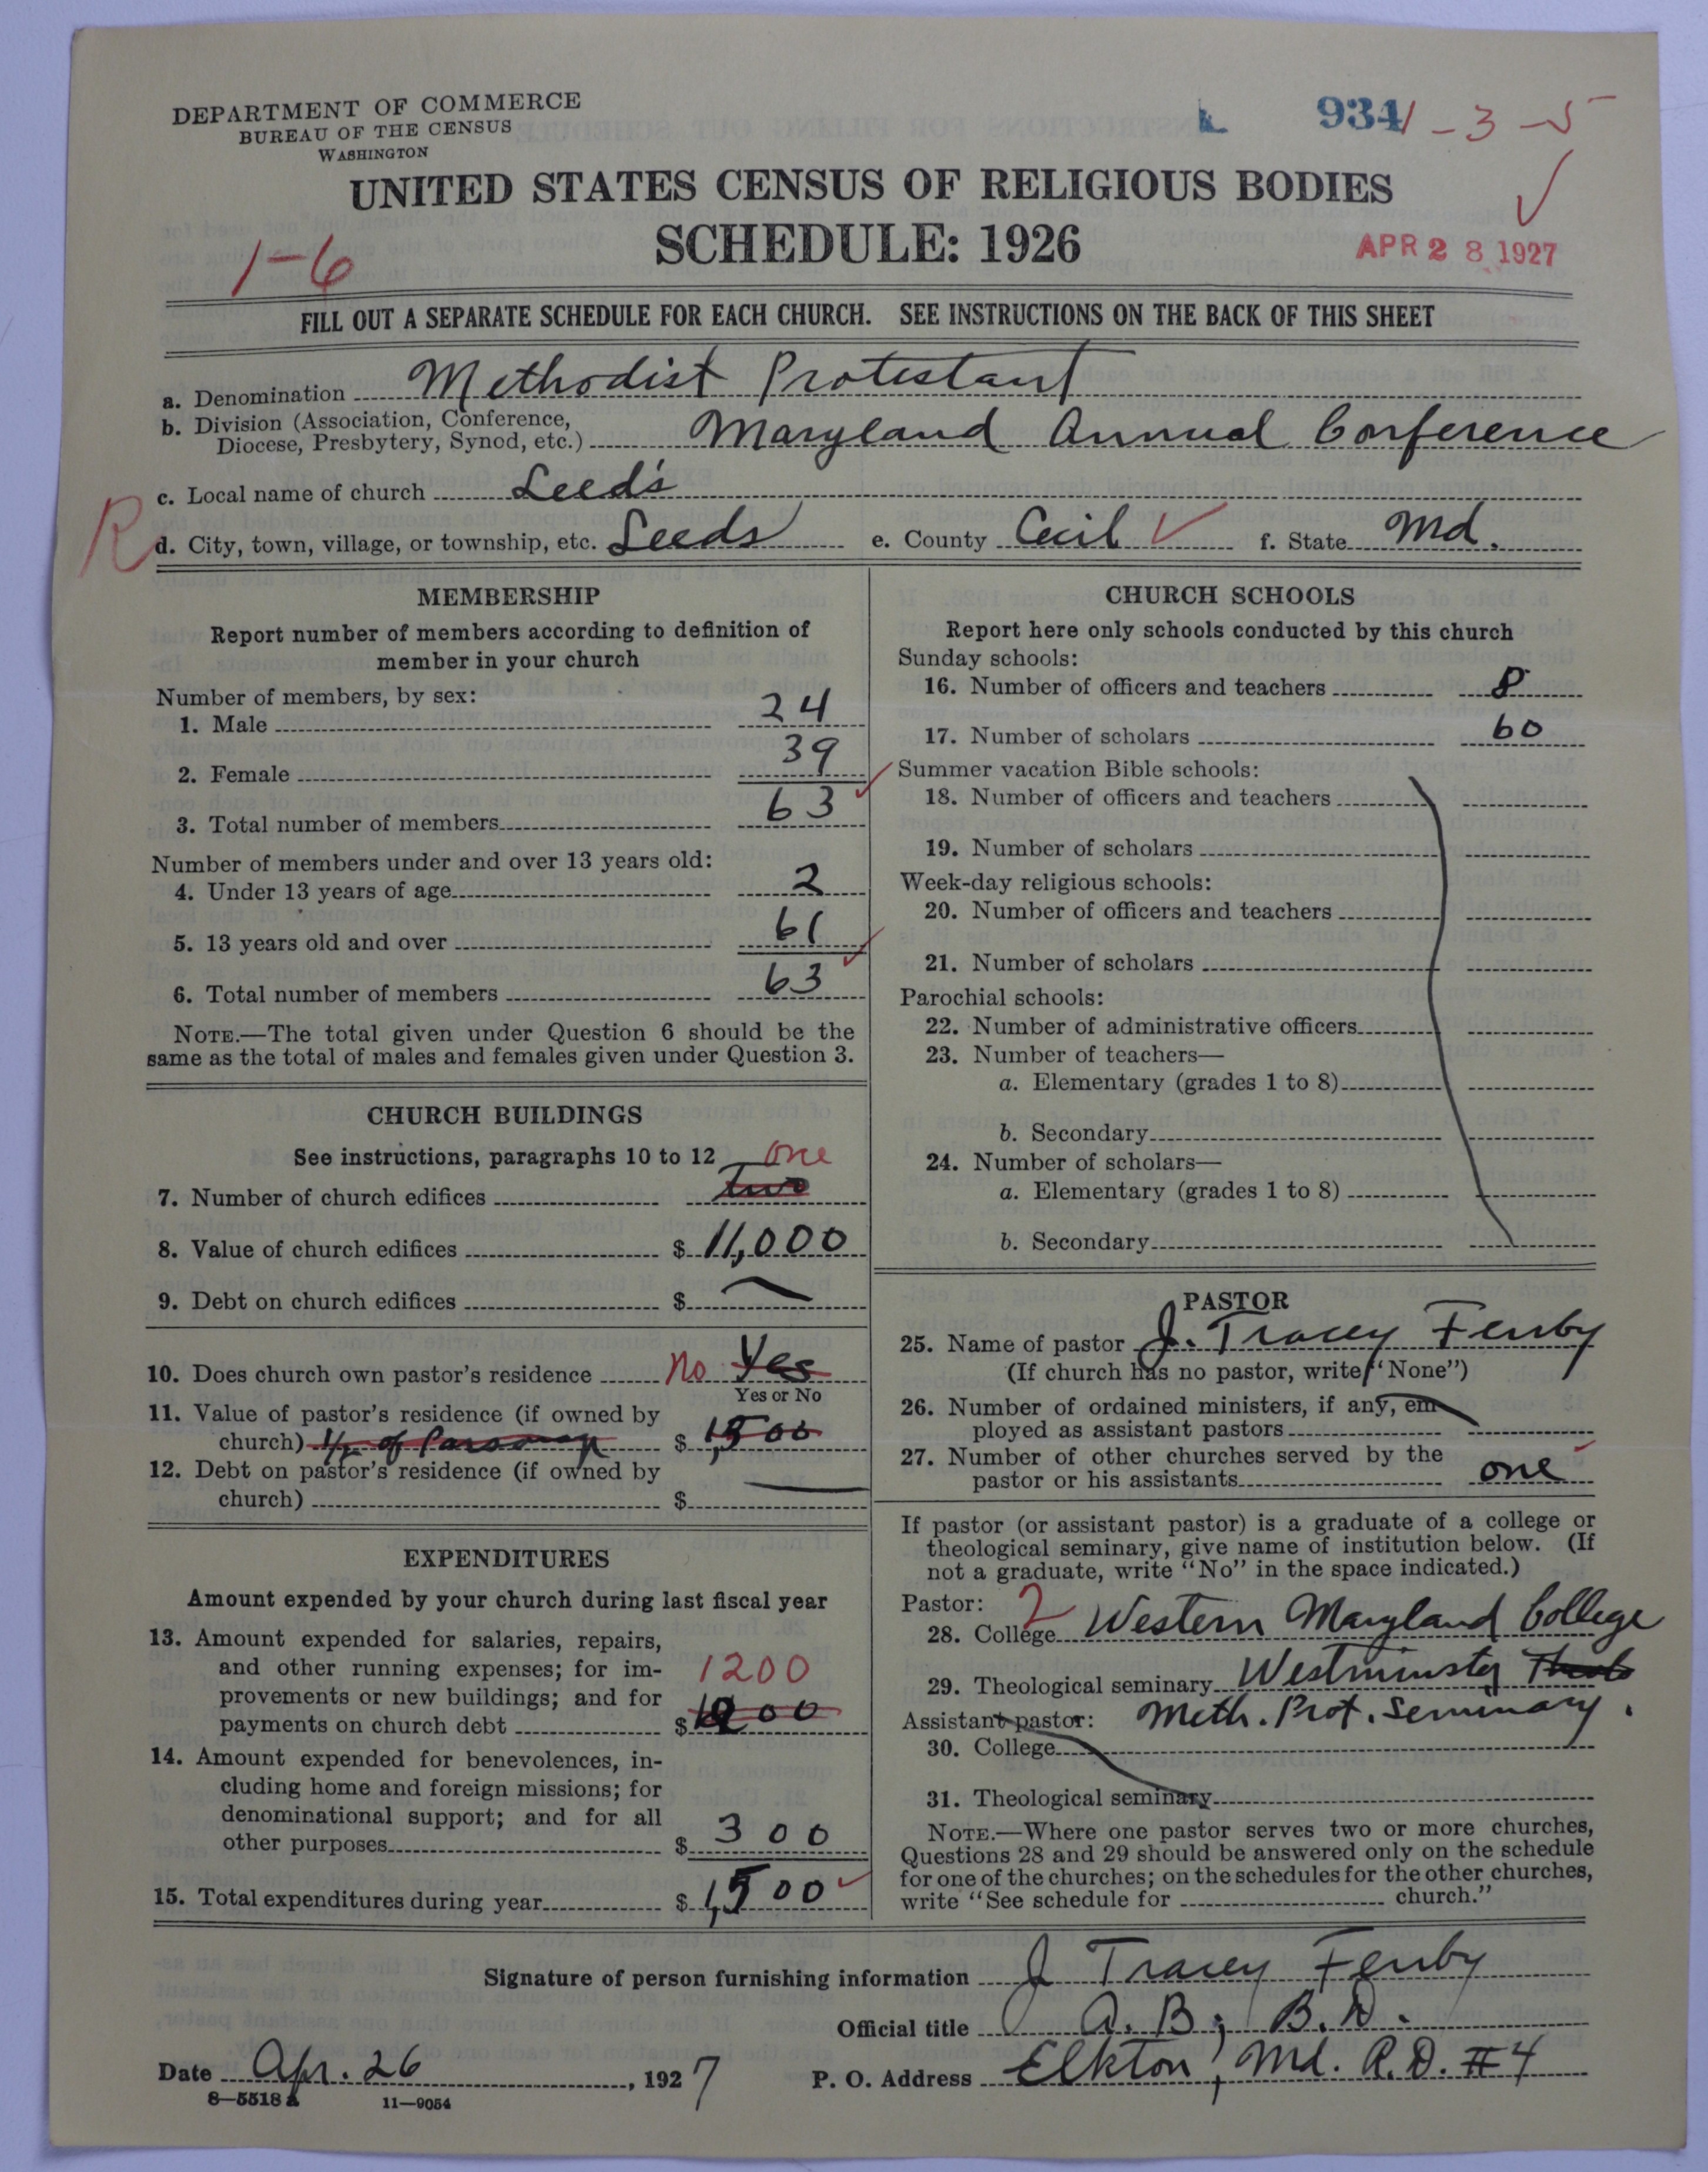 DEPARTMENT OF COMMERCE
BUREAU OF THE CENSUS
WASHINGTON
934
1-3-5
UNITED STATES CENSUS OF RELIGIOUS BODIES
SCHEDULE: 1926
1-6
APR 28 1927
FILL OUT A SEPARATE SCHEDULE FOR EACH CHURCH. SEE INSTRUCTIONS ON THE BACK OF THIS SHEET
a. Denomination Methodist Protestant
b. Division (Association, Conference,
Diocese, Presbytery, Synod, etc.) Maryland Annual Conference
c. Local name of church Leed's
R
d. City, town, village, or township, etc. Leeds e. County Cecil f. State Md.
MEMBERSHIP
Report number of members according to definition of
member in your church
Number of members, by sex:
1. Male 24
2. Female 39
3. Total number of members 63
Number of members under and over 13 years old:
4. Under 13 years of age 2
5. 13 years old and over 61
6. Total number of members 63
NOTE.—The total given under Question 6 should be the
same as the total of males and females given under Question 3.
CHURCH BUILDINGS
See instructions, paragraphs 10 to 12 one
7. Number of church edifices two
8. Value of church edifices $ 11,000
9. Debt on church edifices $
10. Does church own pastor's residence no Yes
Yes or No
11. Value of pastor's residence (if owned by
church) of Parsonage $ 1,500
12. Debt on pastor's residence (if owned by
church) $
EXPENDITURES
Amount expended by your church during last fiscal year
13. Amount expended for salaries, repairs,
and other running expenses; for im-
1200
provements or new buildings; and for
payments on church debt $
14. Amount expended for benevolences, in-
cluding home and foreign missions; for
denominational support; and for all
other purposes $ 300
15. Total expenditures during year $ 1,500
CHURCH SCHOOLS
Report here only schools conducted by this church
Sunday schools:
16. Number of officers and teachers 8
17. Number of scholars 60
Summer vacation Bible schools:
18. Number of officers and teachers
19. Number of scholars
Week-day religious schools:
20. Number of officers and teachers
21. Number of scholars
Parochial schools:
22. Number of administrative officers
23. Number of teachers—
a. Elementary (grades 1 to 8)
b. Secondary
24. Number of scholars—
a. Elementary (grades 1 to 8)
b. Secondary
PASTOR
25. Name of pastor J. Tracey Fenby
(If church has no pastor, write "None")
26. Number of ordained ministers, if any, em-
ployed as assistant pastors
27. Number of other churches served by the
pastor or his assistants one
If pastor (or assistant pastor) is a graduate of a college or
theological seminary, give name of institution below. (If
not a graduate, write "No" in the space indicated.)
Pastor: 2
28. College Western Maryland College
29. Theological seminary Westminster
Assistant pastor: Meth. Prot. Seminary.
30. College
31. Theological seminary
NOTE.—Where one pastor serves two or more churches,
Questions 28 and 29 should be answered only on the schedule
for one of the churches; on the schedules for the other churches,
write "See schedule for church."
Signature of person furnishing information J Tracey Fenby
Official title A.B; B.D.
Date Apr. 26, 1927 P. O. Address Elkton, Md. R.D. #4
8—5518 a 11—9054